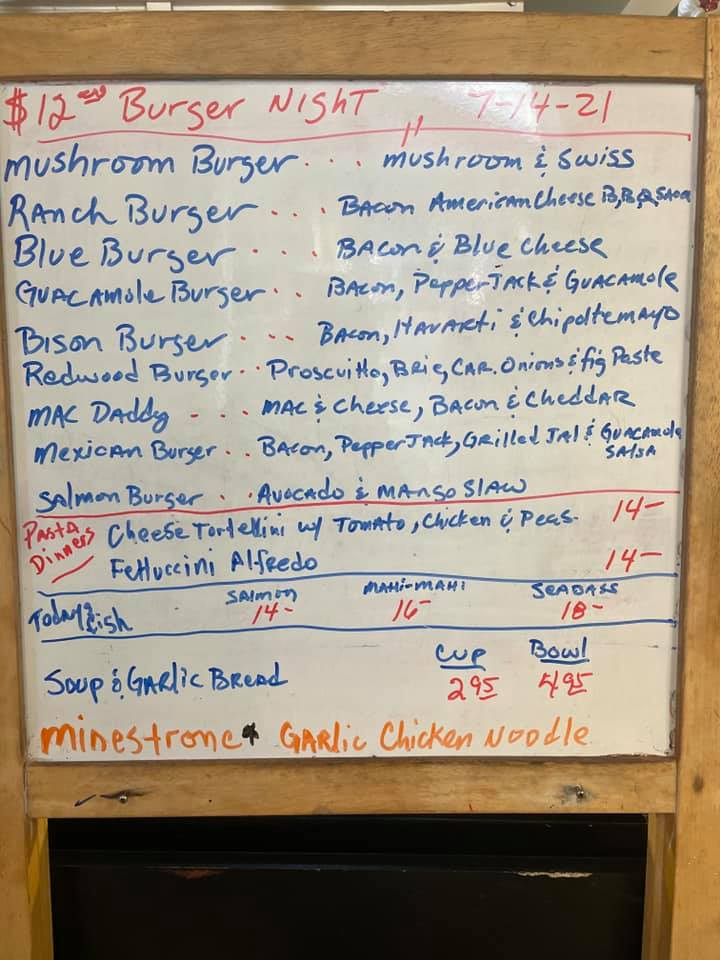 $12.00 Burger Night 7-14-21
Mushroom Burger . . . Mushroom & Swiss
Ranch Burger . . . Bacon American Cheese B,B,Q, Sauce
Blue Burger . . . Bacon & Blue Cheese
Guacamole Burger . . Bacon, Pepper Jack & Guacamole
Bison Burger . . . Bacon, Havarti & Chipolte mayo
Redwood Burger . . Proscuitto, Brie, Car. Onions & fig Paste
Mac Daddy - . . Mac & Cheese, Bacon & Cheddar
Mexican Burger . . Bacon, Pepper Jack, Grilled Jal & Guacamole
Salsa
Salmon Burger . . Avocado & Mango Slaw
Pasta Dinners
Cheese Tortellini w/ Tomato, Chicken & Peas. 14-
Fettuccini Alfredo 14-
Today's fish
Salmon Mahi-Mahi Seabass
14- 16- 18-
Cup Bowl
Soup & Garlic Bread 2 95 4 95
Minestrone & Garlic Chicken Noodle